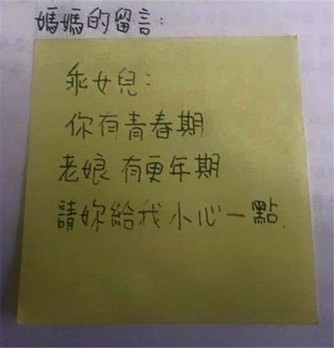 媽媽的留言：
乖女兒：
你有青春期
老娘有更年期
請妳給我小心一點.